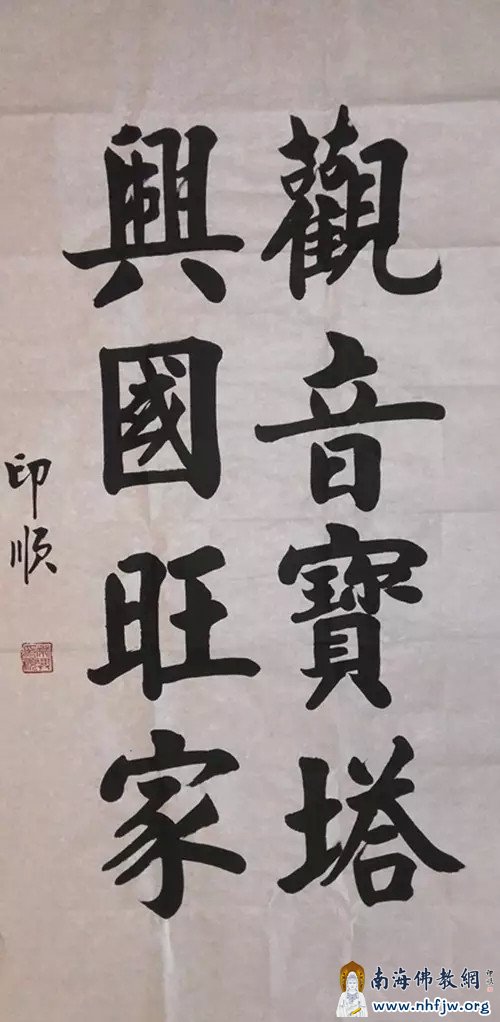 觀音寶塔
興國旺家
印順
南海佛教網
www.nhfjw.org